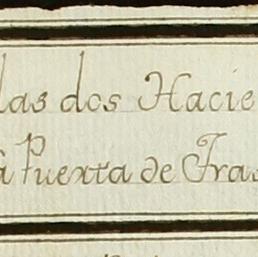 las dos Hacie
à Puerta de Fras